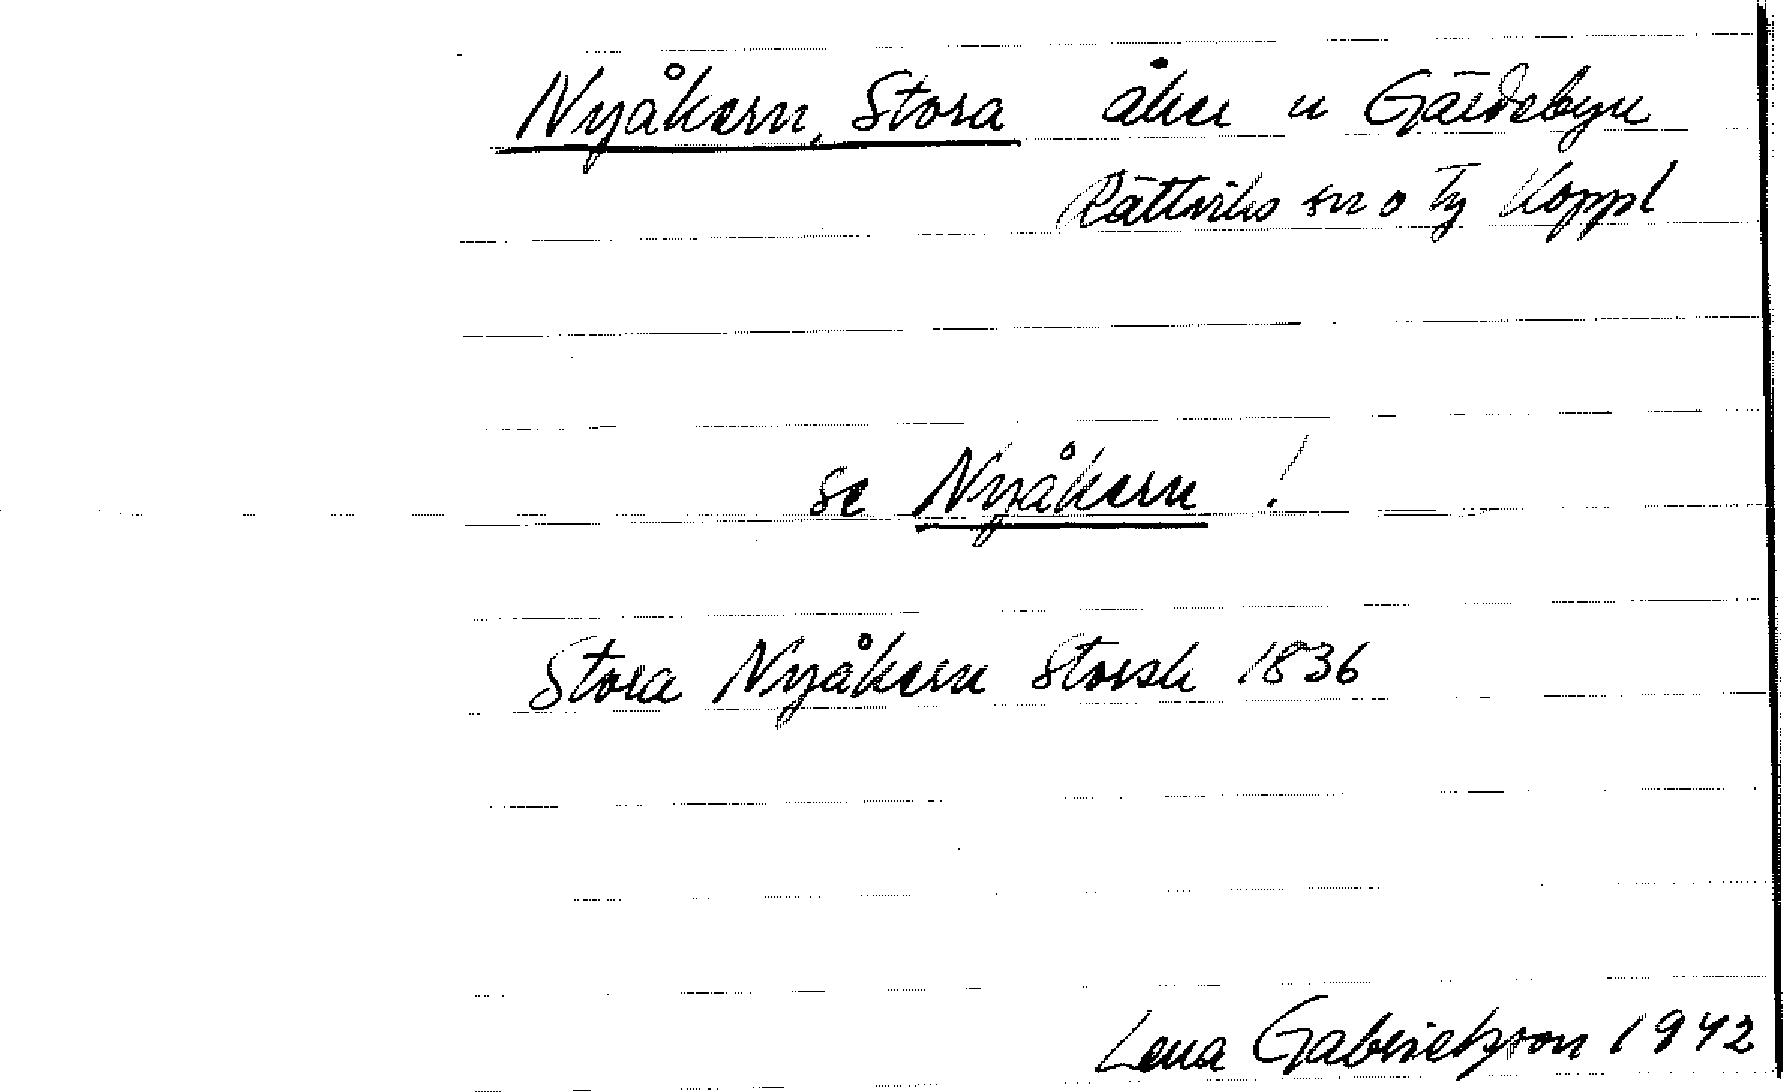 Nyåkern, Stora åker u Gärdebyn
Rättviks sn o Tg Koppl
se Nyåkern !
Stora Nyåkern Storsk 1836
Lena Gabrielsson 1942